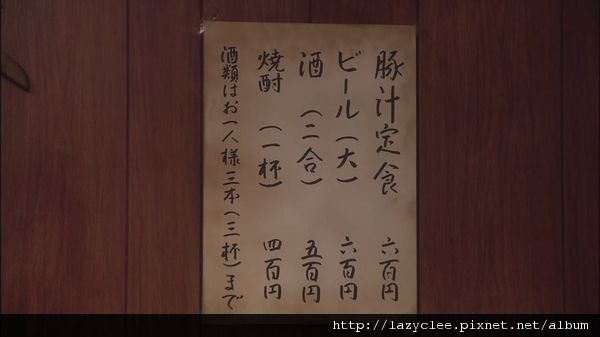 豚汁定食 六百円
ビール(大) 六百円
酒(二合) 五百円
焼酎(一杯) 四百円
酒類はお一人様三本(三杯)まで
http://lazyclee.pixnet.net/album